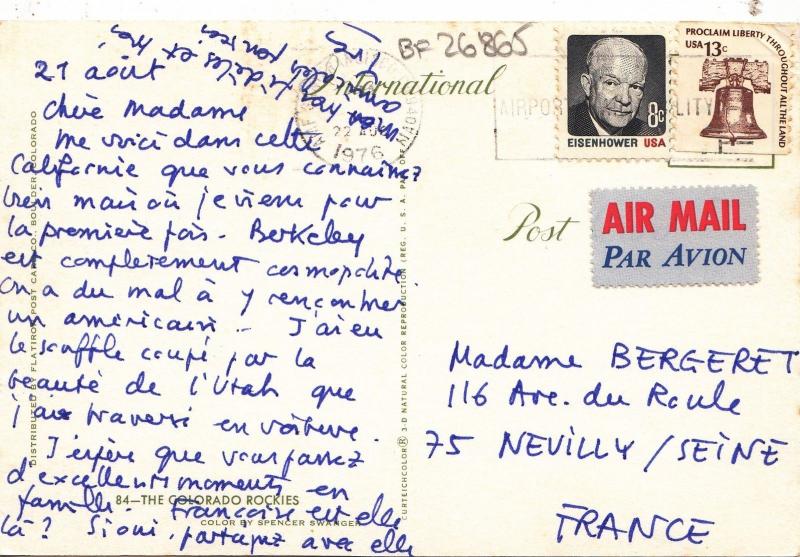 BF 26865
21 août
Chère Madame
me voici dans cette
Californie que vous connaissez
bien mais où je viens pour
la première fois. Berkeley
est complètement cosmopolite
On a du mal à y rencontrer
un américain. J'ai eu
le souffle coupé par la
beauté de l'Utah que
j'ai traversé en voiture.
J'espère que vous passez
d'excellents moments en
famille. Françoise est elle
là? Si oui, partagez avec elle
mon
fidèles et très
pensées
International
Post
22
1976
AIRPORT
EISENHOWER USA
8c
PROCLAIM LIBERTY THROUGHOUT ALL THE LAND
USA 13c
AIR MAIL
PAR AVION
Madame BERGERET
116 Ave. du Roule
75 NEUILLY / SEINE
FRANCE
84—THE COLORADO ROCKIES
COLOR BY SPENCER SWANGER
DISTRIBUTED BY FLATIRON POST CARD CO., BOULDER, COLORADO
CURTEICHCOLOR® 3-D NATURAL COLOR REPRODUCTION (REG. U. S. A. PAT. OFF.)